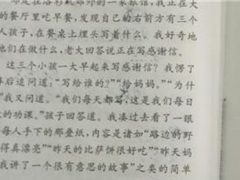 的餐厅里吃早餐，发现自己的右前方有三个
人孩子，在餐桌上埋头写着什么。我好奇地
他们在做什么，老大回答说正在写感谢信。
这三个小孩一大早起来写感谢信？我愣了
后追问道：“写给谁的？”“给妈妈。”“为什
”我又问道。“我们每天都写，这是我们每日
的功课。”孩子回答道。我凑过去看了一眼
每人手下的那叠纸，内容是诸如“路边的野
得真漂亮”“昨天的比萨饼很好吃”“昨天妈
我讲了一个很有意思的故事”之类的简单